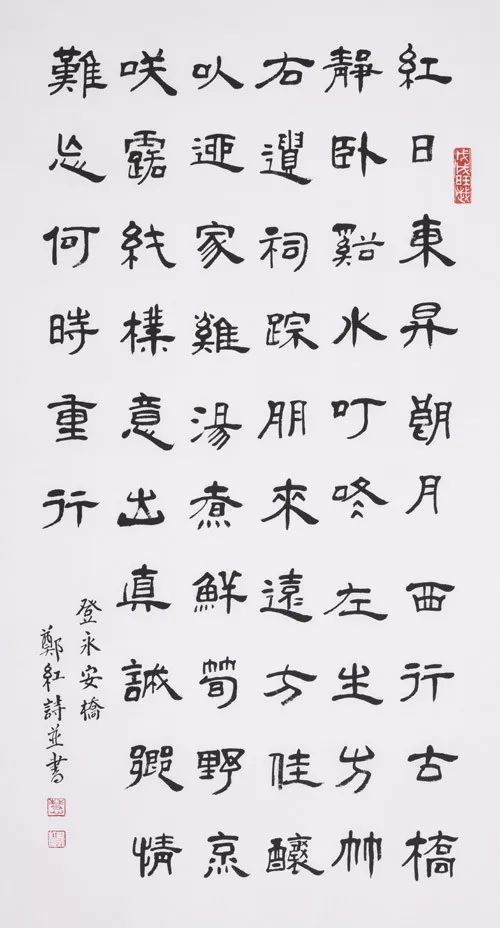 紅日東昇朗月西行古橋
靜臥谿水叮咚左生方竹
右遺祠踪朋來遠方佳釀
以迎家雞湯煮鮮筍野烹
咲露純樸意出真誠鄉情
難忘何時重行
登永安橋
鄭紅詩並書